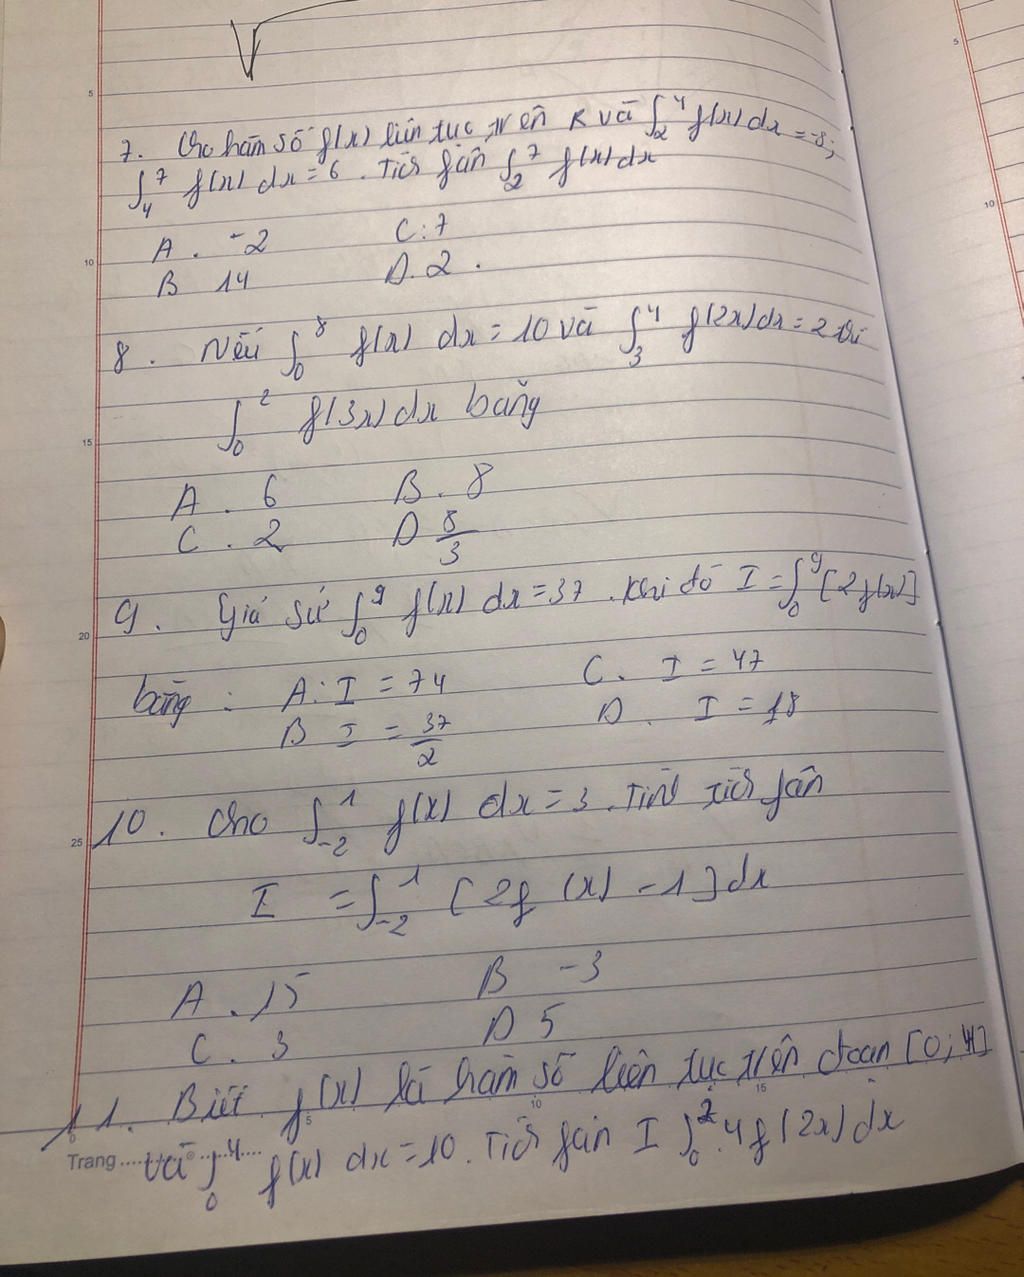 5
7. Cho hàm số f(x) liên tục trên R và ∫₂⁴ f(x) dx = -8;
∫₄⁷ f(x) dx = 6. Tích phân ∫₂⁷ f(x) dx
A. -2 C: 7
10
B 14 D. 2.
8. Nếu ∫₀⁸ f(x) dx = 10 và ∫₃⁴ f(2x) dx = 2 thì
∫₀² f(3x) dx bằng
15
A. 6 B. 8
C. 2 D 8/3
9. Giả sử ∫₀⁹ f(x) dx = 37. Khi đó I = ∫₀⁹ [2f(x)]
20
bằng: A: I = 74 C. I = 47
B I = 37/2 D. I = 18
10. Cho ∫₋₂¹ f(x) dx = 3. Tính tích phân
25
I = ∫₋₂¹ [2f(x) - 1] dx
A. 15 B -3
C. 3 D 5
11. Biết f(x) là hàm số liên tục trên đoạn [0; 4]
0 5 10 15
Trang và ∫₀⁴ f(x) dx = 10. Tích phân I ∫₀² 4f(2x) dx
5
10